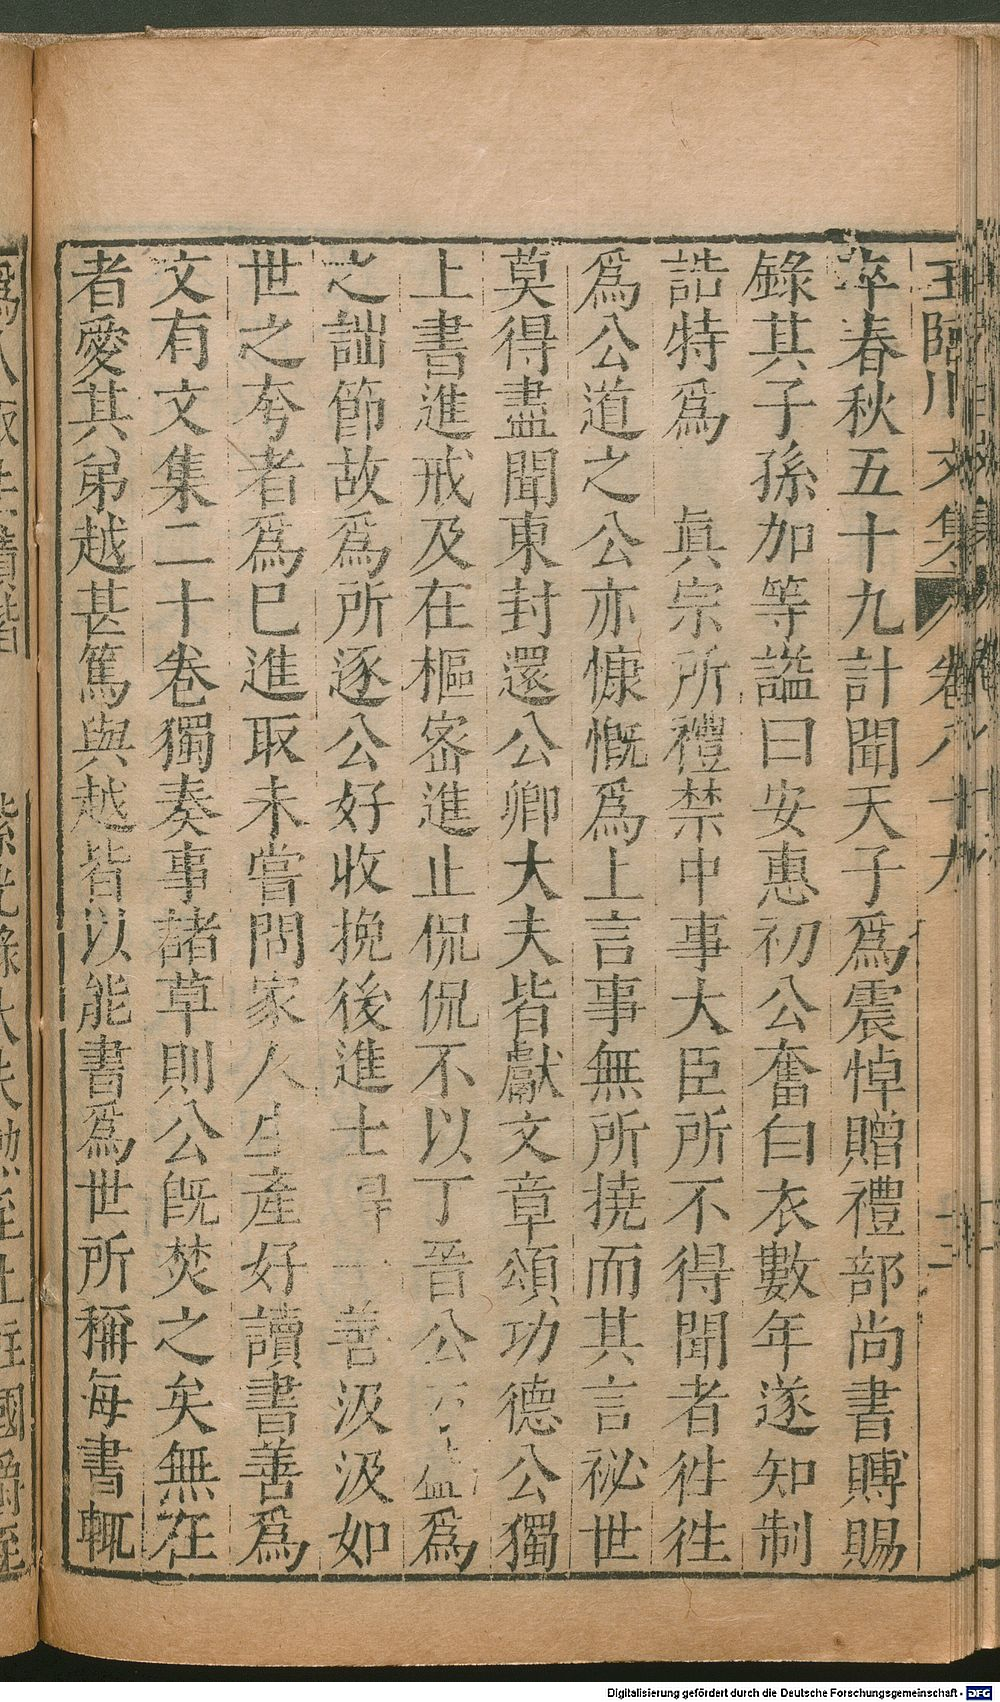 王臨川文集 卷八十九
卒春秋五十九計聞天子爲震悼贈禮部尚書賻賜
錄其子孫加等謚曰安惠初公奮白衣數年遂知制
誥特爲 眞宗所禮禁中事大臣所不得聞者徃徃
爲公道之公亦慷慨爲上言事無所撓而其言祕世
莫得盡聞東封還公卿大夫皆獻文章頌功德公獨
上書進戒及在樞密進止侃侃不以丁晉公 爲
之詘節故爲所逐公好收挽後進士 一善汲汲如
世之夸者爲已進取未嘗問家人生產好讀書善爲
文有文集二十卷獨奏事諸草則公旣焚之矣無在
者愛其弟越甚篤與越皆以能書爲世所稱每書輒
Digitalisierung gefördert durch die Deutsche Forschungsgemeinschaft - DFG